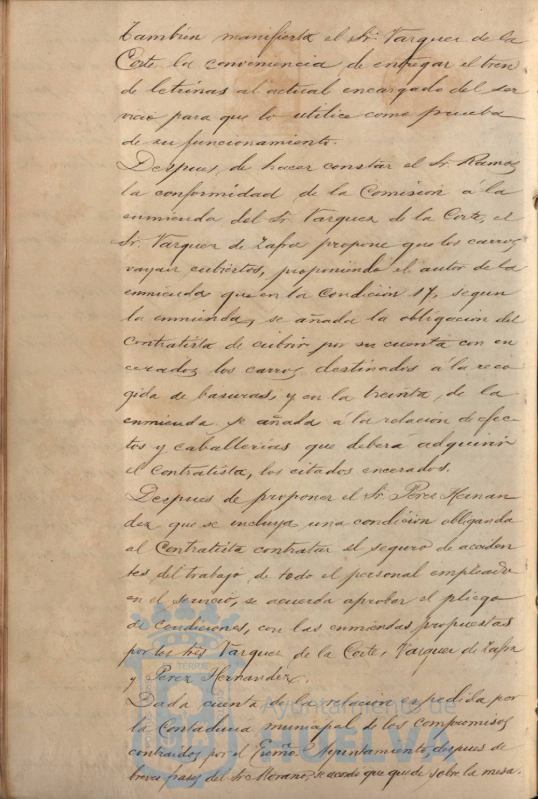 Tambien manifiesta el Sr. Vazquez de la
Corte la conveniencia de entregar el tren
de letrinas al actual encargado del ser
vicio para que lo utilice como prueba
de su funcionamiento.
Despues de hacer constar el Sr. Ramos
la conformidad de la Comision á la
enmienda del Sr. Vazquez de la Corte, el
Sr. Vazquez de Zafra propone que los carros
vayan cubiertos, proponiendo el autor de la
enmienda que en la condición 17, segun
la enmienda, se añada la obligación del
Contratista de cubrir por su cuenta con en
cerados los carros destinados á la reco
gida de basuras, y en la treinta, de la
enmienda se añada á la relación de efec
tos y caballerias que deberá adquirir
el contratista, los citados encerados.
Despues de proponer el Sr. Perez Hernan
dez que se incluya una condición obligando
al Contratista contratar el seguro de acciden
tes del trabajo de todo el personal empleado
en el servicio, se acuerda aprobar el pliego
de condiciones, con las enmiendas propuestas
por los Sres Vazquez de la Corte, Vazquez de Zafra
y Perez Hernandez.
Dada cuenta de la relación expedida por
la Contaduria municipal de los compromisos
contraidos por el Excmo Ayuntamiento, despues de
breves frases del Sr. Morano, se acordó que quede sobre la mesa.
Ayuntamiento de
HUELVA